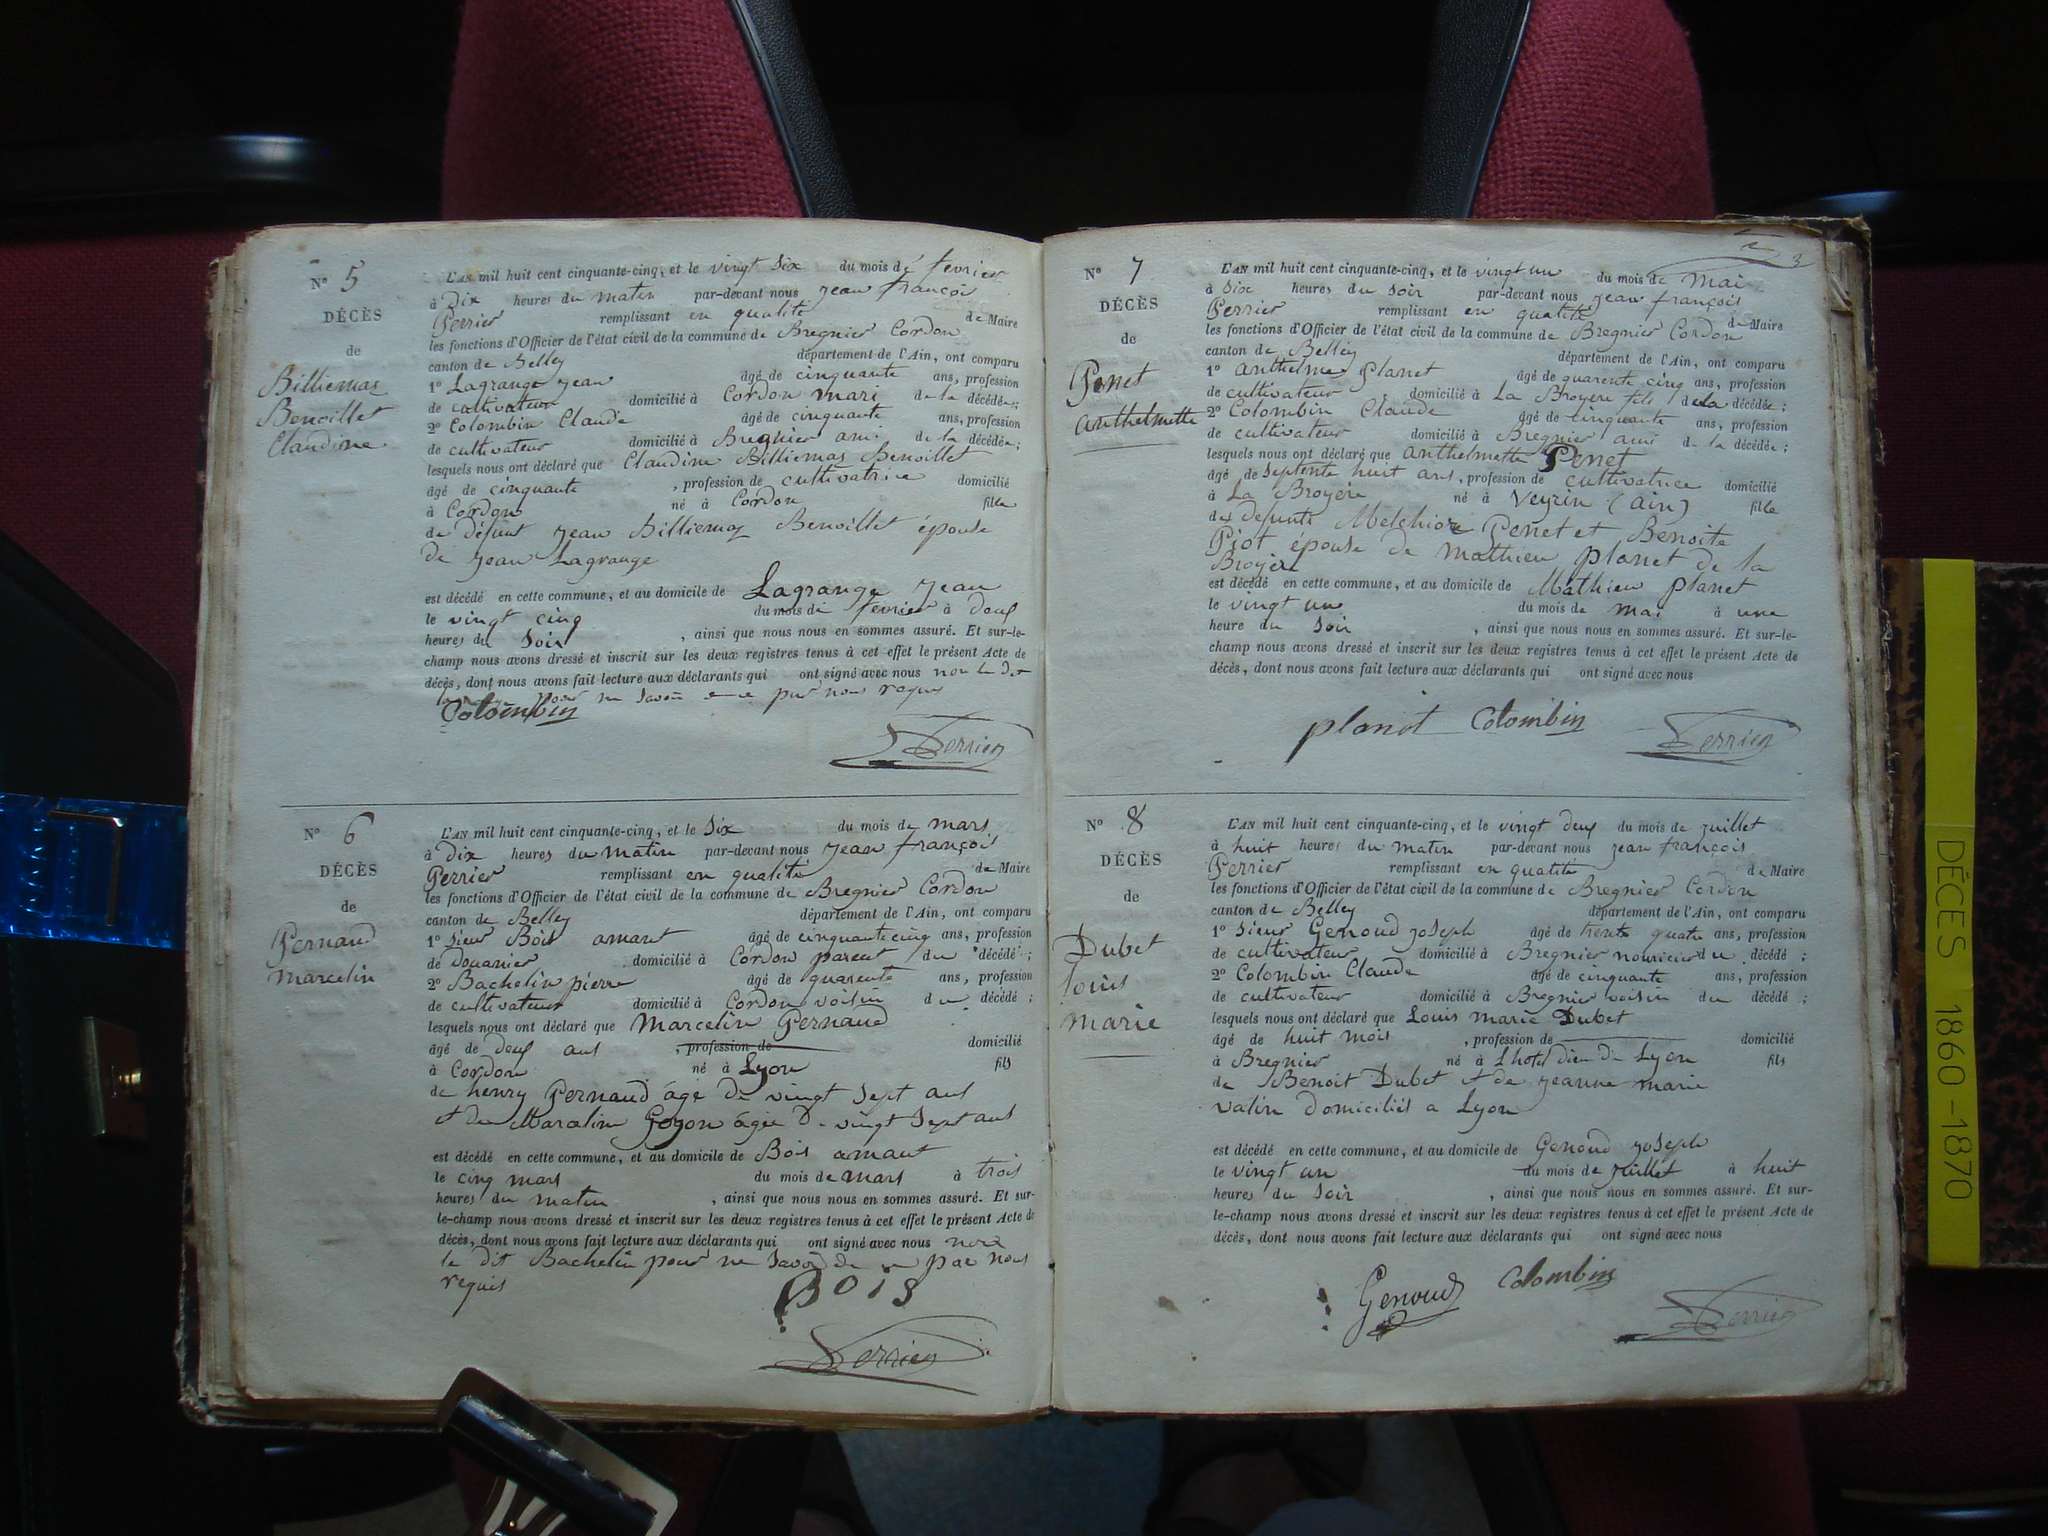 N° 5
DÉCÈS
de
Billiemaz
Benoillet
Claudine
L'AN mil huit cent cinquante-cinq, et le vingt six du mois de fevrier
à Dix heures du matin par-devant nous Jean françois
Perrier remplissant en qualité de Maire
les fonctions d'Officier de l'état civil de la commune de Bregnier Cordon
canton de Belley département de l'Ain, ont comparu
1° Lagrange Jean âgé de cinquante ans, profession
de cultivateur domicilié à Cordon mari de la décédée;
2° Colombin Claude âgé de cinquante ans, profession
de cultivateur domicilié à Bregnier ami de la décédée;
lesquels nous ont déclaré que Claudine Billiemaz Benoillet
âgé de cinquante, profession de cultivatrice domicilié
à Cordon né à Cordon fille
de défunt Jean Billiemaz Benoillet épouse
de Jean Lagrange
est décédé en cette commune, et au domicile de Lagrange Jean
le vingt cinq du mois de fevrier à deux
heures du Soir, ainsi que nous nous en sommes assuré. Et sur-le-
champ nous avons dressé et inscrit sur les deux registres tenus à cet effet le présent Acte de
décès, dont nous avons fait lecture aux déclarants qui ont signé avec nous non le dit
pour ne savoir de ce par nous requis
Colombin
Perrier
N° 6
DÉCÈS
de
Pernaud
marcelin
L'AN mil huit cent cinquante-cinq, et le Six du mois de mars
à dix heures du matin par-devant nous Jean françois
Perrier remplissant en qualité de Maire
les fonctions d'Officier de l'état civil de la commune de Bregnier Cordon
canton de Belley département de l'Ain, ont comparu
1° Sieur Bois amant âgé de cinquante cinq ans, profession
de Douanier domicilié à Cordon parent du décédé;
2° Bachelin pierre âgé de quarente ans, profession
de cultivateur domicilié à Cordon voisin du décédé;
lesquels nous ont déclaré que Marcelin Pernaud
âgé de deux ans, profession de domicilié
à Cordon né à Lyon fils
de henry Pernaud âgé de vingt sept ans
et de Marcelin Goyon âgée de vingt sept ans
est décédé en cette commune, et au domicile de Bois amant
le cinq mars du mois de mars à trois
heures du matin, ainsi que nous nous en sommes assuré. Et sur-
le-champ nous avons dressé et inscrit sur les deux registres tenus à cet effet le présent Acte de
décès, dont nous avons fait lecture aux déclarants qui ont signé avec nous non
le dit Bachelin pour ne savoir de ce par nous
requis
BOIS
Perrier
3
N° 7
DÉCÈS
de
Penet
anthelmette
L'AN mil huit cent cinquante-cinq, et le vingt un du mois de Mai
à Six heures du soir par-devant nous Jean françois
Perrier remplissant en qualité de Maire
les fonctions d'Officier de l'état civil de la commune de Bregnier Cordon
canton de Belley département de l'Ain, ont comparu
1° anthelme Planet âgé de quarente cinq ans, profession
de cultivateur domicilié à La Broyere fils de la décédée;
2° Colombin Claude âgé de cinquante ans, profession
de cultivateur domicilié à Bregnier ami de la décédée;
lesquels nous ont déclaré que anthelmette Penet
âgé de septente huit ans, profession de cultivatrice domicilié
à La Broyere né à Veyrin (ain) fille
des defunts Melchior Penet et Benoite
Piot épouse de mathieu planet de la
Broyere
est décédé en cette commune, et au domicile de Mathieu planet
le vingt un du mois de mai à une
heure du Soir, ainsi que nous nous en sommes assuré. Et sur-le-
champ nous avons dressé et inscrit sur les deux registres tenus à cet effet le présent Acte de
décès, dont nous avons fait lecture aux déclarants qui ont signé avec nous
planet Colombin
Perrier
N° 8
DÉCÈS
de
Dubet
louis
marie
L'AN mil huit cent cinquante-cinq, et le vingt deux du mois de Juillet
à huit heures du matin par-devant nous Jean françois
Perrier remplissant en qualité de Maire
les fonctions d'Officier de l'état civil de la commune de Bregnier Cordon
canton de Belley département de l'Ain, ont comparu
1° Sieur Genoud Joseph âgé de trente quatre ans, profession
de cultivateur domicilié à Bregnier nouricier du décédé;
2° Colombin Claude âgé de cinquante ans, profession
de cultivateur domicilié à Bregnier voisin du décédé;
lesquels nous ont déclaré que Louis marie Dubet
âgé de huit mois, profession de domicilié
à Bregnier né à L'hotel dieu de Lyon fils
de Benoit Dubet et de Jeanne marie
valin domiciliés a Lyon
est décédé en cette commune, et au domicile de Genoud Joseph
le vingt un du mois de Juillet à huit
heures du Soir, ainsi que nous nous en sommes assuré. Et sur-
le-champ nous avons dressé et inscrit sur les deux registres tenus à cet effet le présent Acte de
décès, dont nous avons fait lecture aux déclarants qui ont signé avec nous
Genoud Colombin
Perrier
DÉCES 1860-1870